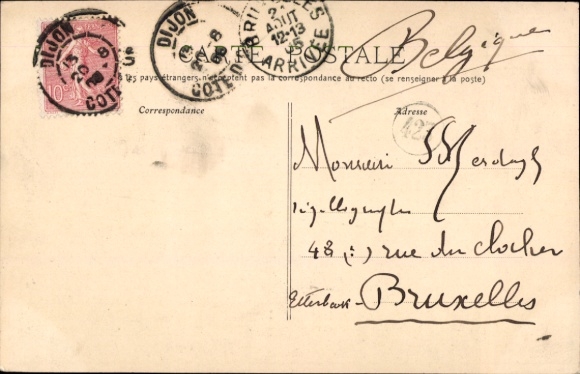 DIJON
COTE D
DIJON
COTE D
BRUXELLES
AOUT
12-13
ARRIVEE
10
CARTE POSTALE
Belgique
les pays étrangers n'acceptent pas la correspondance au recto (se renseigner à la poste)
Correspondance
Adresse
Monsieur
48 rue du Clocher
Etterbeek
Bruxelles